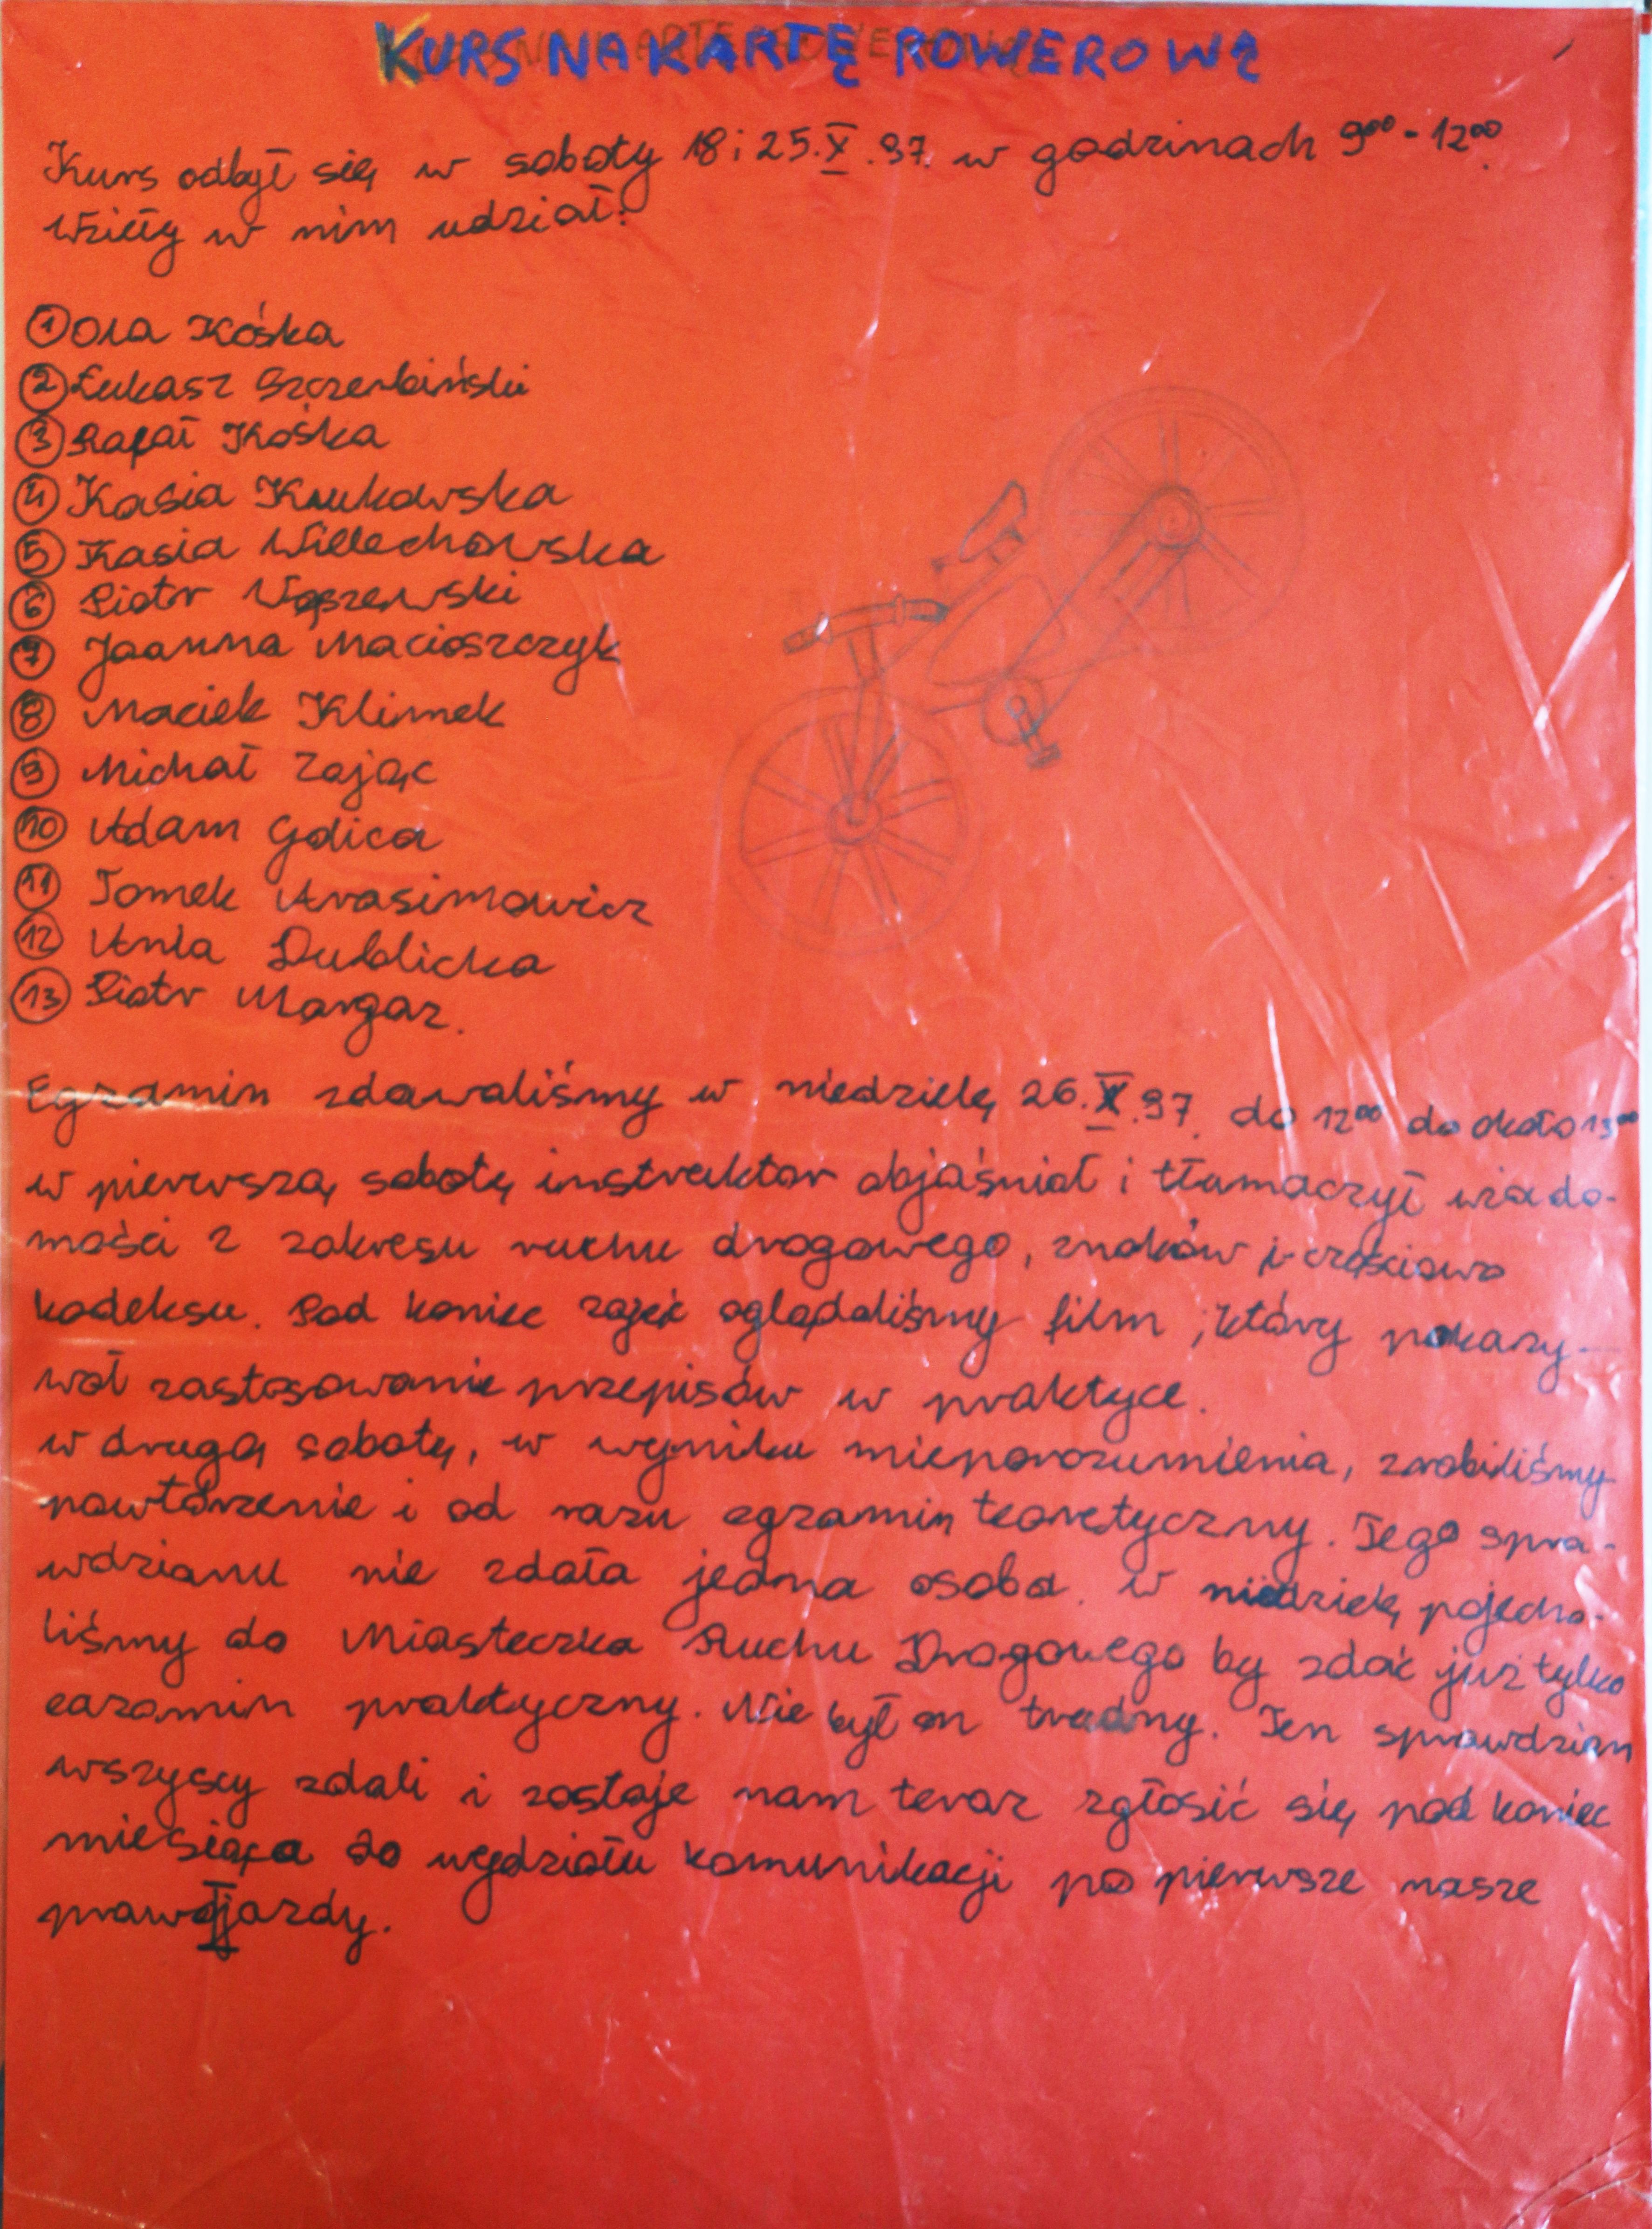 KURS NA KARTĘ ROWEROWĄ
Kurs odbył się w soboty 18 i 25.X.97. w godzinach 9⁰⁰ - 12⁰⁰.
Wzięły w nim udział:
① Ola Kośka
② Łukasz Szczerbiński
③ Rafał Kośka
④ Kasia Krukowska
⑤ Kasia Willechowska
⑥ Piotr Wąszewski
⑦ Joanna Macioszczyk
⑧ Maciek Klimek
⑨ Michał Zając
⑩ Adam Golica
⑪ Tomek Arasimowicz
⑫ Ania Dublicka
⑬ Piotr Margaz.
Egzamin zdawaliśmy w niedzielę 26.X.97. do 12⁰⁰ do około 13⁰⁰
w pierwszą sobotę instruktor objaśniał i tłumaczył wiado-
mości z zakresu ruchu drogowego, znaków i częściowo
kodeksu. Pod koniec zajęć oglądaliśmy film, który pokazy-
wał zastosowanie przepisów w praktyce.
w drugą sobotę, w wyniku nieporozumienia, zrobiliśmy
powtórzenie i od razu egzamin teoretyczny. Tego spra-
wdzianu nie zdała jedna osoba. w niedzielę pojecha-
liśmy do Miasteczka Ruchu Drogowego by zdać już tylko
egzamin praktyczny. Nie był on trudny. Ten sprawdzian
wszyscy zdali i zostaje nam teraz zgłosić się pod koniec
miesiąca do wydziału komunikacji po pierwsze nasze
prawo jazdy.